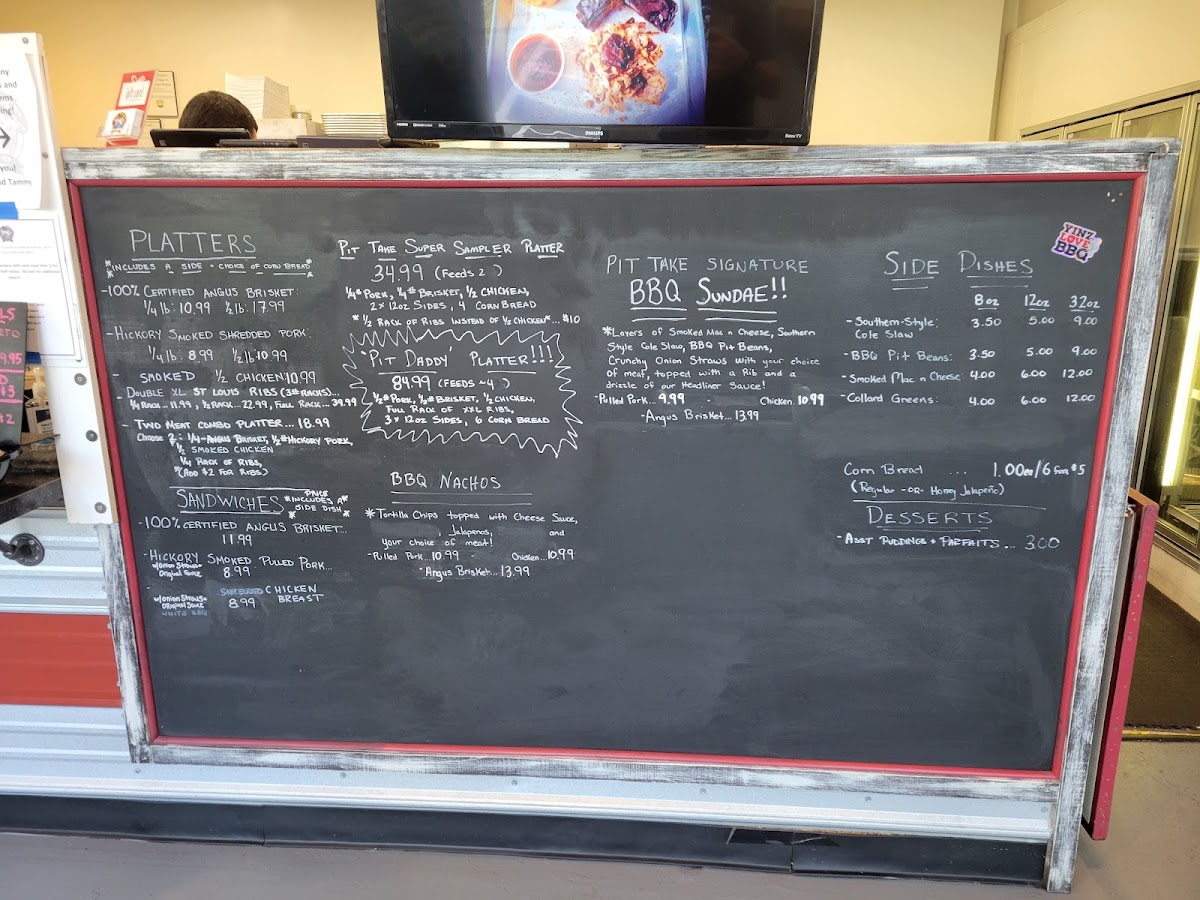 PLATTERS
*INCLUDES A SIDE + CHOICE OF CORN BREAD*
-100% CERTIFIED ANGUS BRISKET:
1/4 lb: 10.99 1/2 lb: 17.99
-HICKORY SMOKED SHREDDED PORK:
1/4 lb: 8.99 1/2 lb 10.99
- SMOKED 1/2 CHICKEN 10.99
- DOUBLE XL ST LOUIS RIBS (3# RACKS)...
1/4 RACK... 11.99, 1/2 RACK... 22.99, FULL RACK... 39.99
- TWO MEAT COMBO PLATTER... 18.99
CHOOSE 2: 1/4-ANGUS BRISKET, 1/2# HICKORY PORK,
1/2 SMOKED CHICKEN
1/4 RACK OF RIBS,
*(ADD $2 FOR RIBS)
SANDWICHES
*PRICE
*INCLUDES A*
*SIDE DISH*
-100% CERTIFIED ANGUS BRISKET...
11.99
-HICKORY SMOKED PULLED PORK...
w/Onion Straws+
Original Sauce
8.99
- SHREDDED CHICKEN
BREAST
w/onion Straws+
Original Sauce
WHITE BBQ
8.99
PIT TAKE SUPER SAMPLER PLATTER
34.99 (FEEDS 2)
1/4# PORK, 1/4# BRISKET, 1/2 CHICKEN,
2 x 12oz SIDES, 4 CORN BREAD
* 1/2 RACK OF RIBS INSTEAD OF 1/2 CHICKEN*... $10
"PIT DADDY PLATTER!!!!
84.99 (FEEDS ~4)
1/2# PORK, 1/2# BRISKET, 1/2 CHICKEN,
FULL RACK OF XXL RIBS,
3 x 12oz SIDES, 6 CORN BREAD
BBQ NACHOS
*Tortilla Chips topped with Cheese Sauce,
, Jalapenos, and
your choice of meat!
-Pulled Pork... 10.99 - Chicken... 10.99
-Angus Brisket... 13.99
PIT TAKE SIGNATURE
BBQ SUNDAE!!
*Layers of Smoked Mac n Cheese, Southern
Style Cole Slaw, BBQ Pit Beans,
Crunchy Onion Straws with your choice
of meat, topped with a Rib and a
drizzle of our Headliner Sauce!
-Pulled Pork... 9.99 - Chicken. 10.99
-Angus Brisket... 13.99
SIDE DISHES
8oz 12oz 32oz
-Southern-Style: 3.50 5.00 9.00
Cole Slaw
-BBQ Pit Beans: 3.50 5.00 9.00
-Smoked Mac n Cheese: 4.00 6.00 12.00
-Collard Greens: 4.00 6.00 12.00
Corn Bread .... 1.00ea/6 for $5
(Regular -OR- Honey Jalapeño)
DESSERTS
-ASST PUDDINGS + PARFAITS... 3.00
YINZ
LOVE
BBQ
PHILIPS
Roku TV